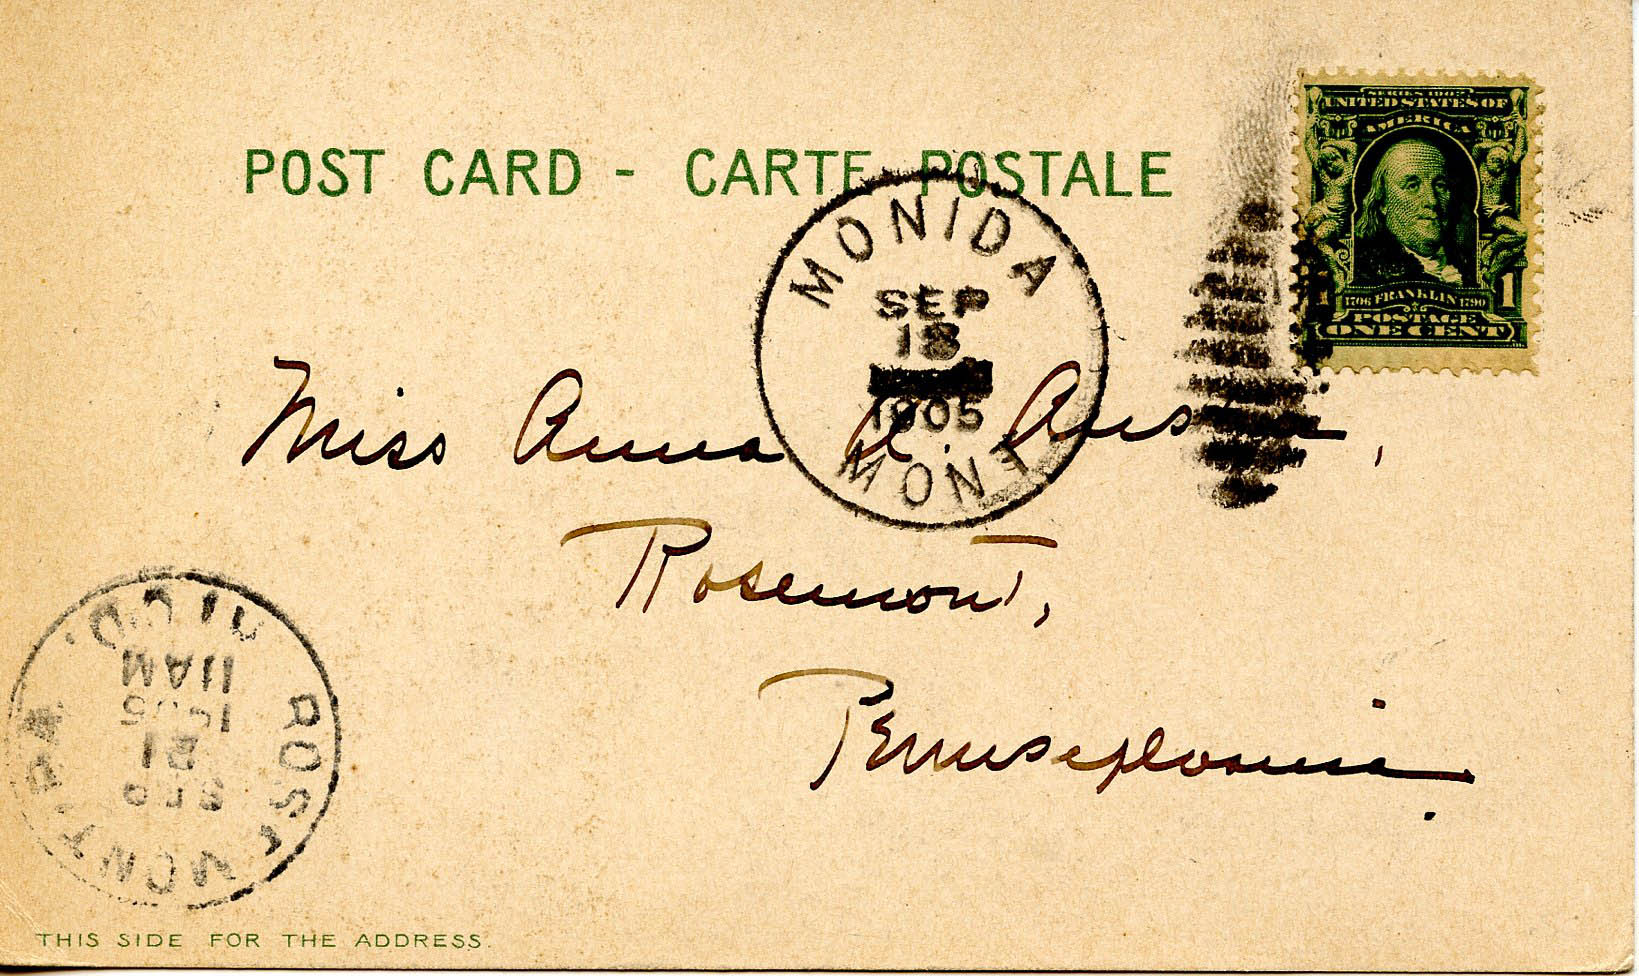 POST CARD - CARTE POSTALE
SERIES 1902
UNITED STATES OF
AMERICA
1706 FRANKLIN 1790
1 1
POSTAGE
ONE CENT
MONIDA
SEP
18
1905
MONT
Miss Anna A.
Rosemont,
Pennsylvania.
ROSEMONT, PA.
SEP
21
1905
11AM
REC'D.
THIS SIDE FOR THE ADDRESS.